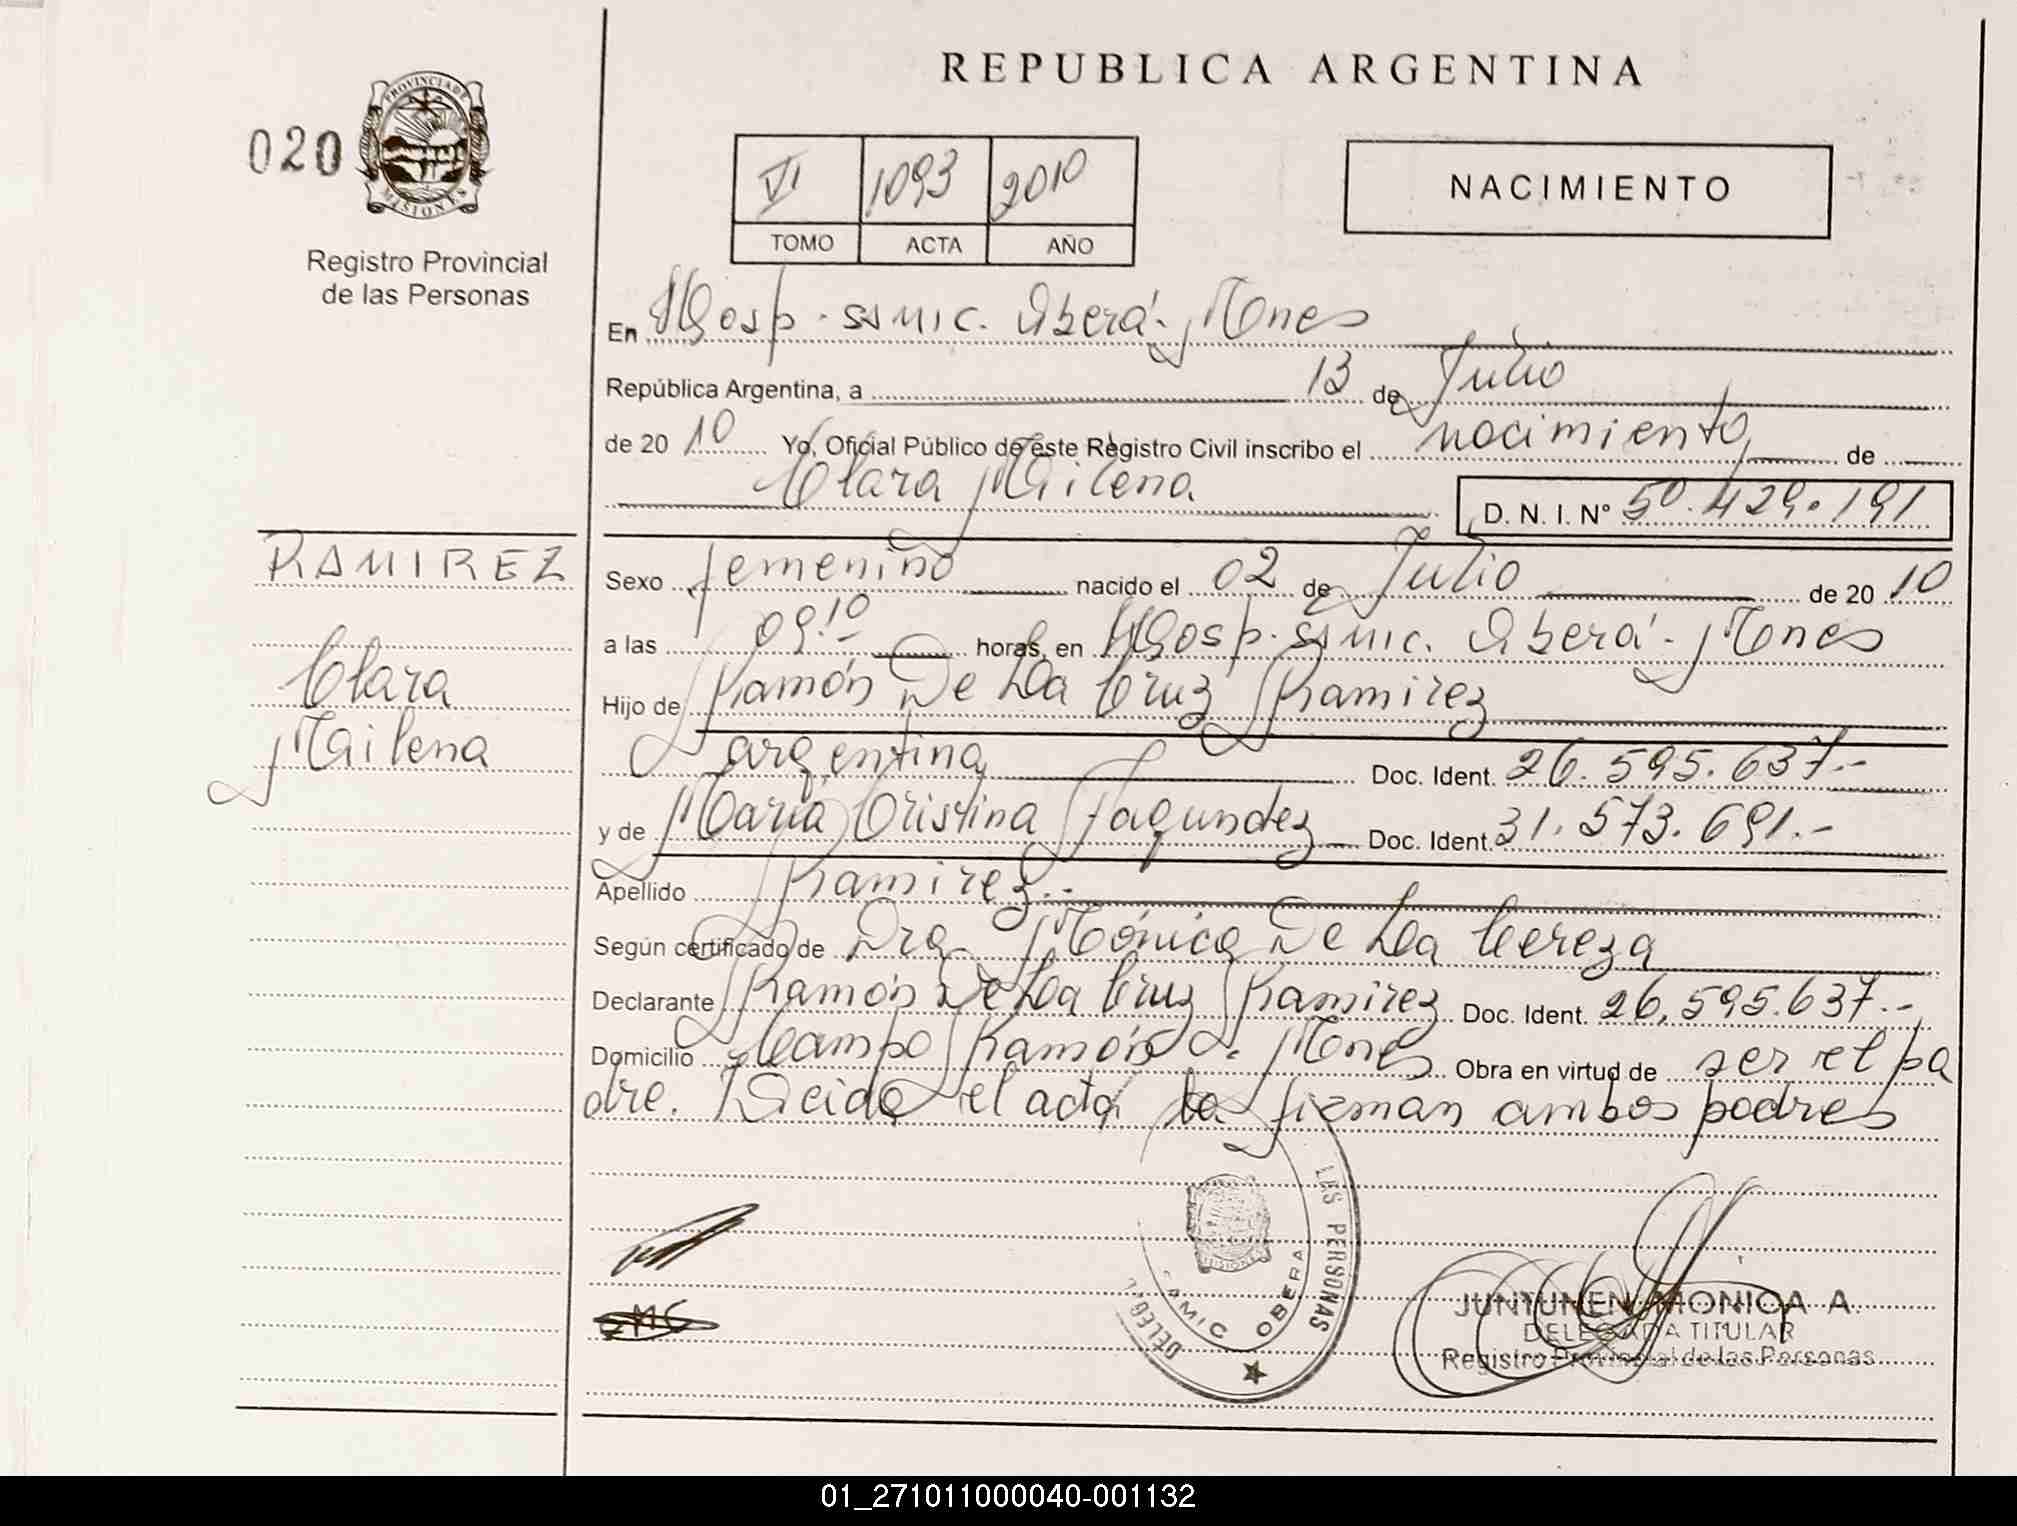 REPUBLICA ARGENTINA
020
PROVINCIA DE
MISIONES
Registro Provincial
de las Personas
VI 1093 2010
TOMO ACTA AÑO
NACIMIENTO
En Hosp. SAMIC. Oberá - Mnes
República Argentina, a 13 de Julio
de 2010 Yo, Oficial Público de este Registro Civil inscribo el nacimiento de
Clara Mailena
D. N. I. N° 50.429.191
RAMIREZ
Clara
Mailena
Sexo femenino nacido el 02 de Julio de 2010
a las 09.10 horas, en Hosp. SAMIC. Oberá - Mnes
Hijo de Ramón De La Cruz Ramirez
argentina Doc. Ident. 26.595.637.-
y de Maria Cristina Fagundez Doc. Ident. 31.573.691.-
Apellido Ramirez.-
Según certificado de Dra Mónica De La Cereza
Declarante Ramón De La Cruz Ramirez Doc. Ident. 26.595.637.-
Domicilio Campo Ramón - Mnes Obra en virtud de ser el pa
dre. Leida el acta la firman ambos padres
LAS PERSONAS
DELEG.
SAMIC OBERA
JUNTUNEN MONICA A.
DELEGADA TITULAR
Registro Provincial de las Personas
01_271011000040-001132